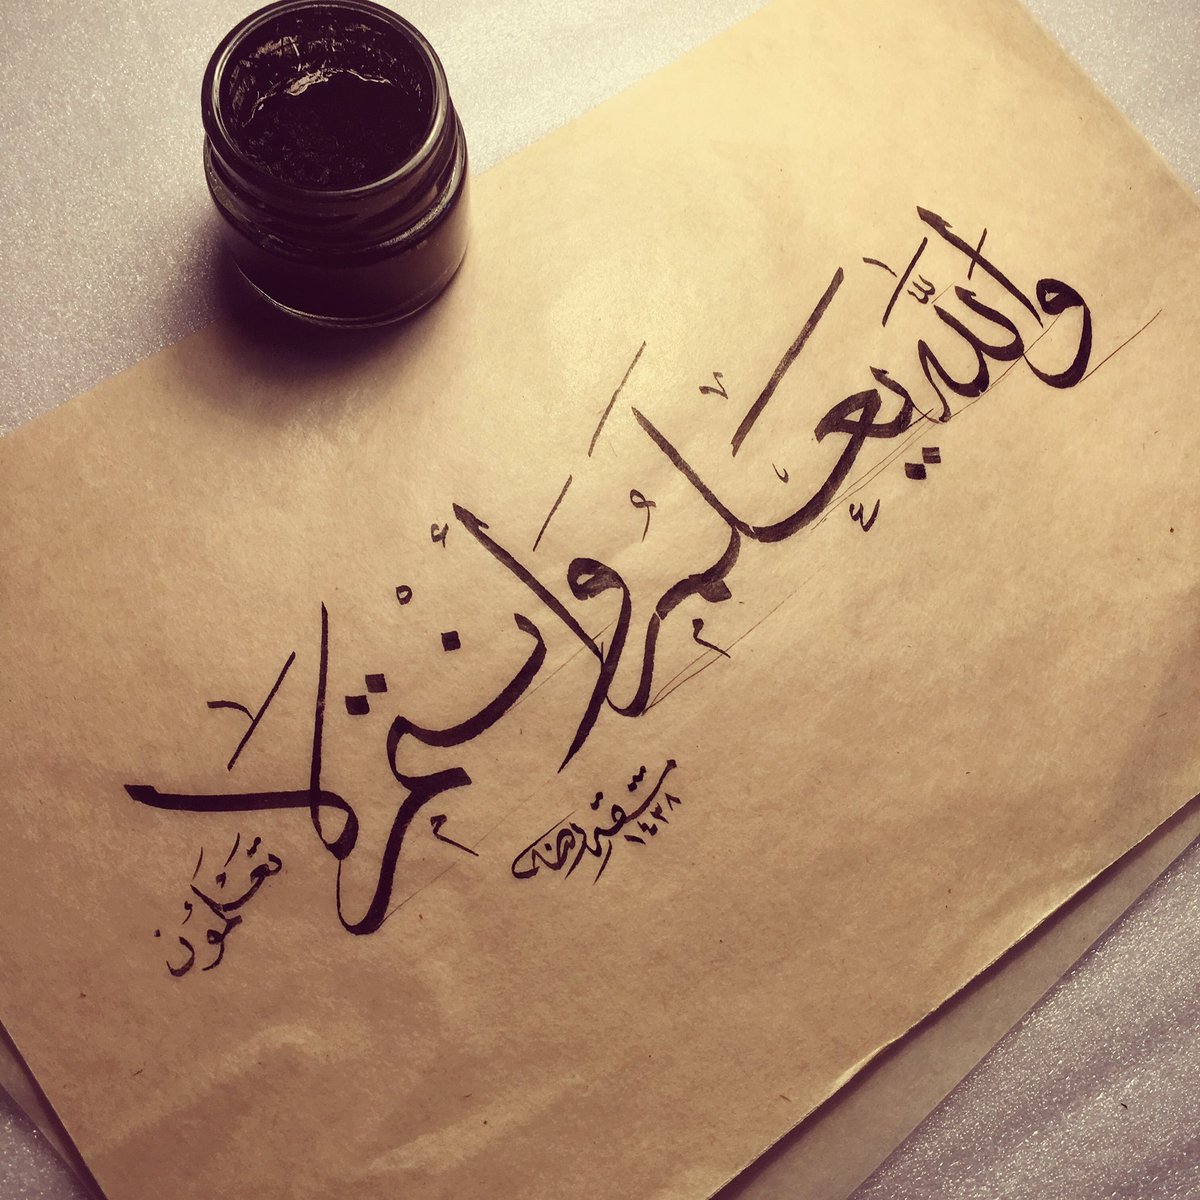 والله يعلم وأنتم لا
تعلمون
١٤٣٨